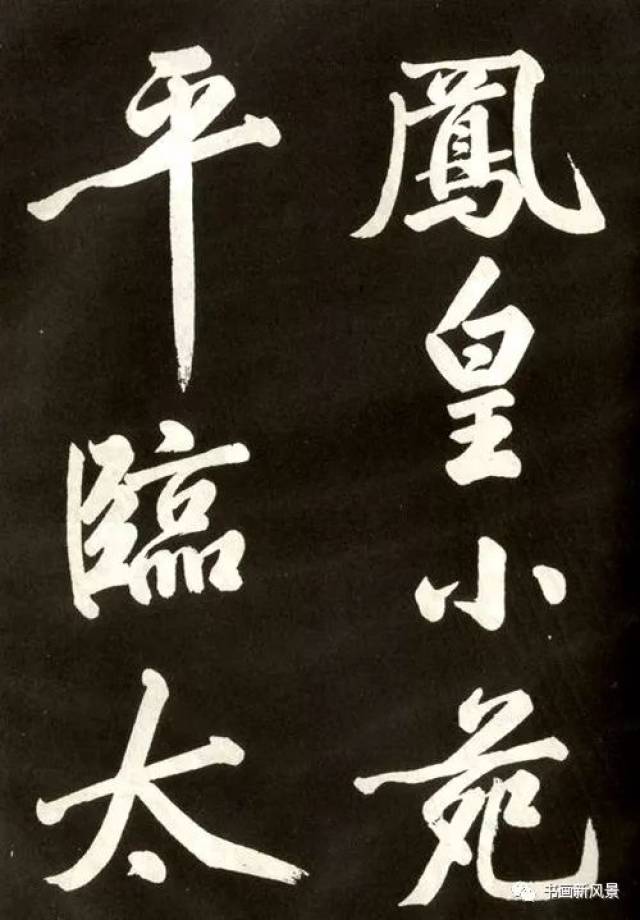 鳳皇小苑
平臨太
书画新风景